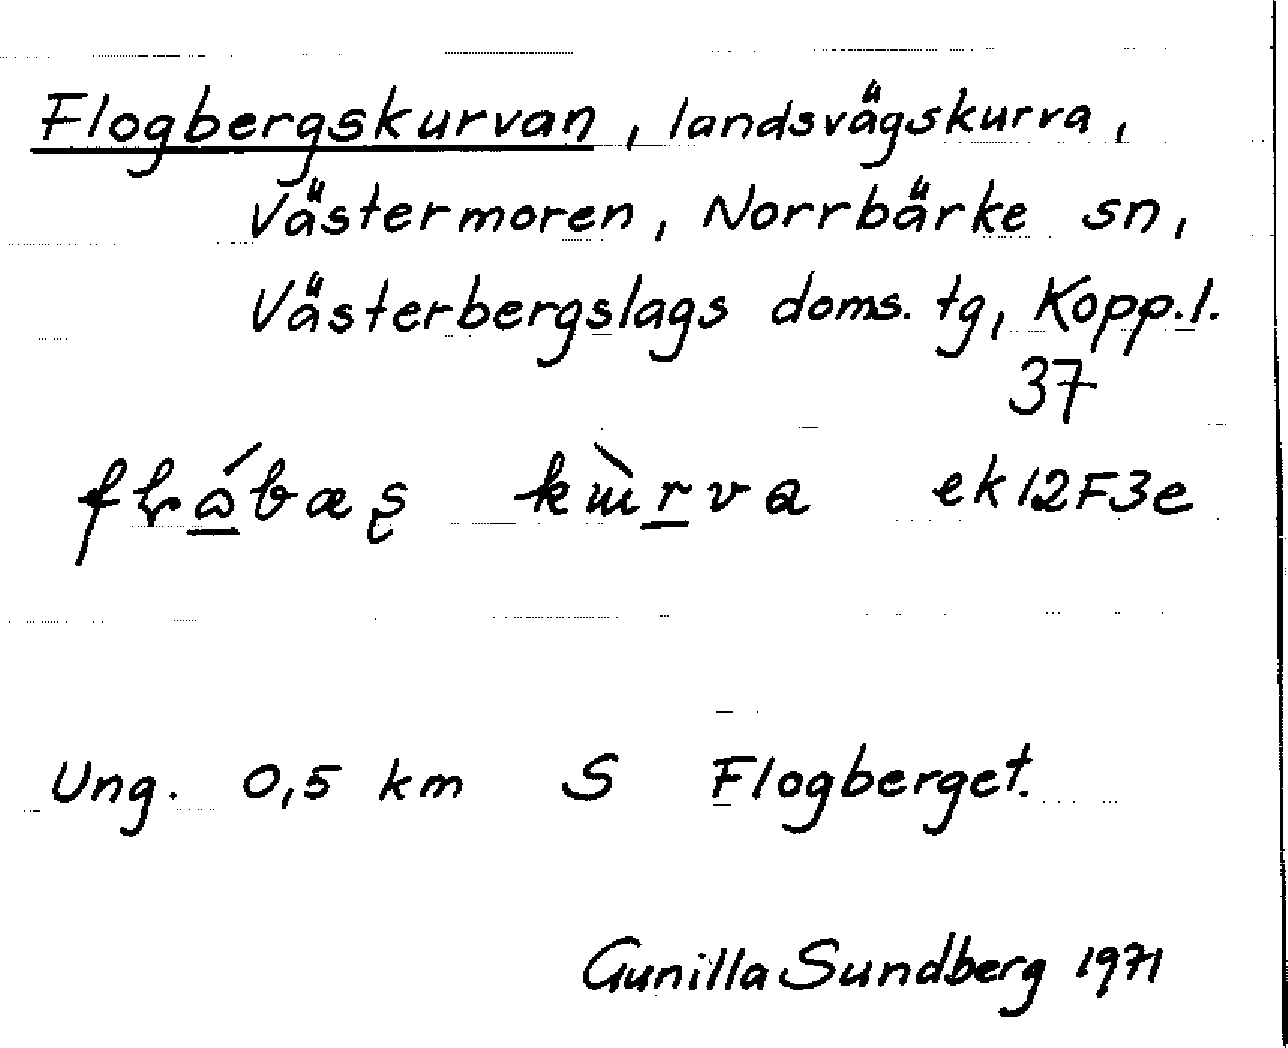 Flogbergskurvan, landsvägskurva,
Västermoren, Norrbärke sn,
Västerbergslags doms. tg, Kopp.l.
37
ek12F3e
Ung. 0,5 km S Flogberget.
Gunilla Sundberg 1971